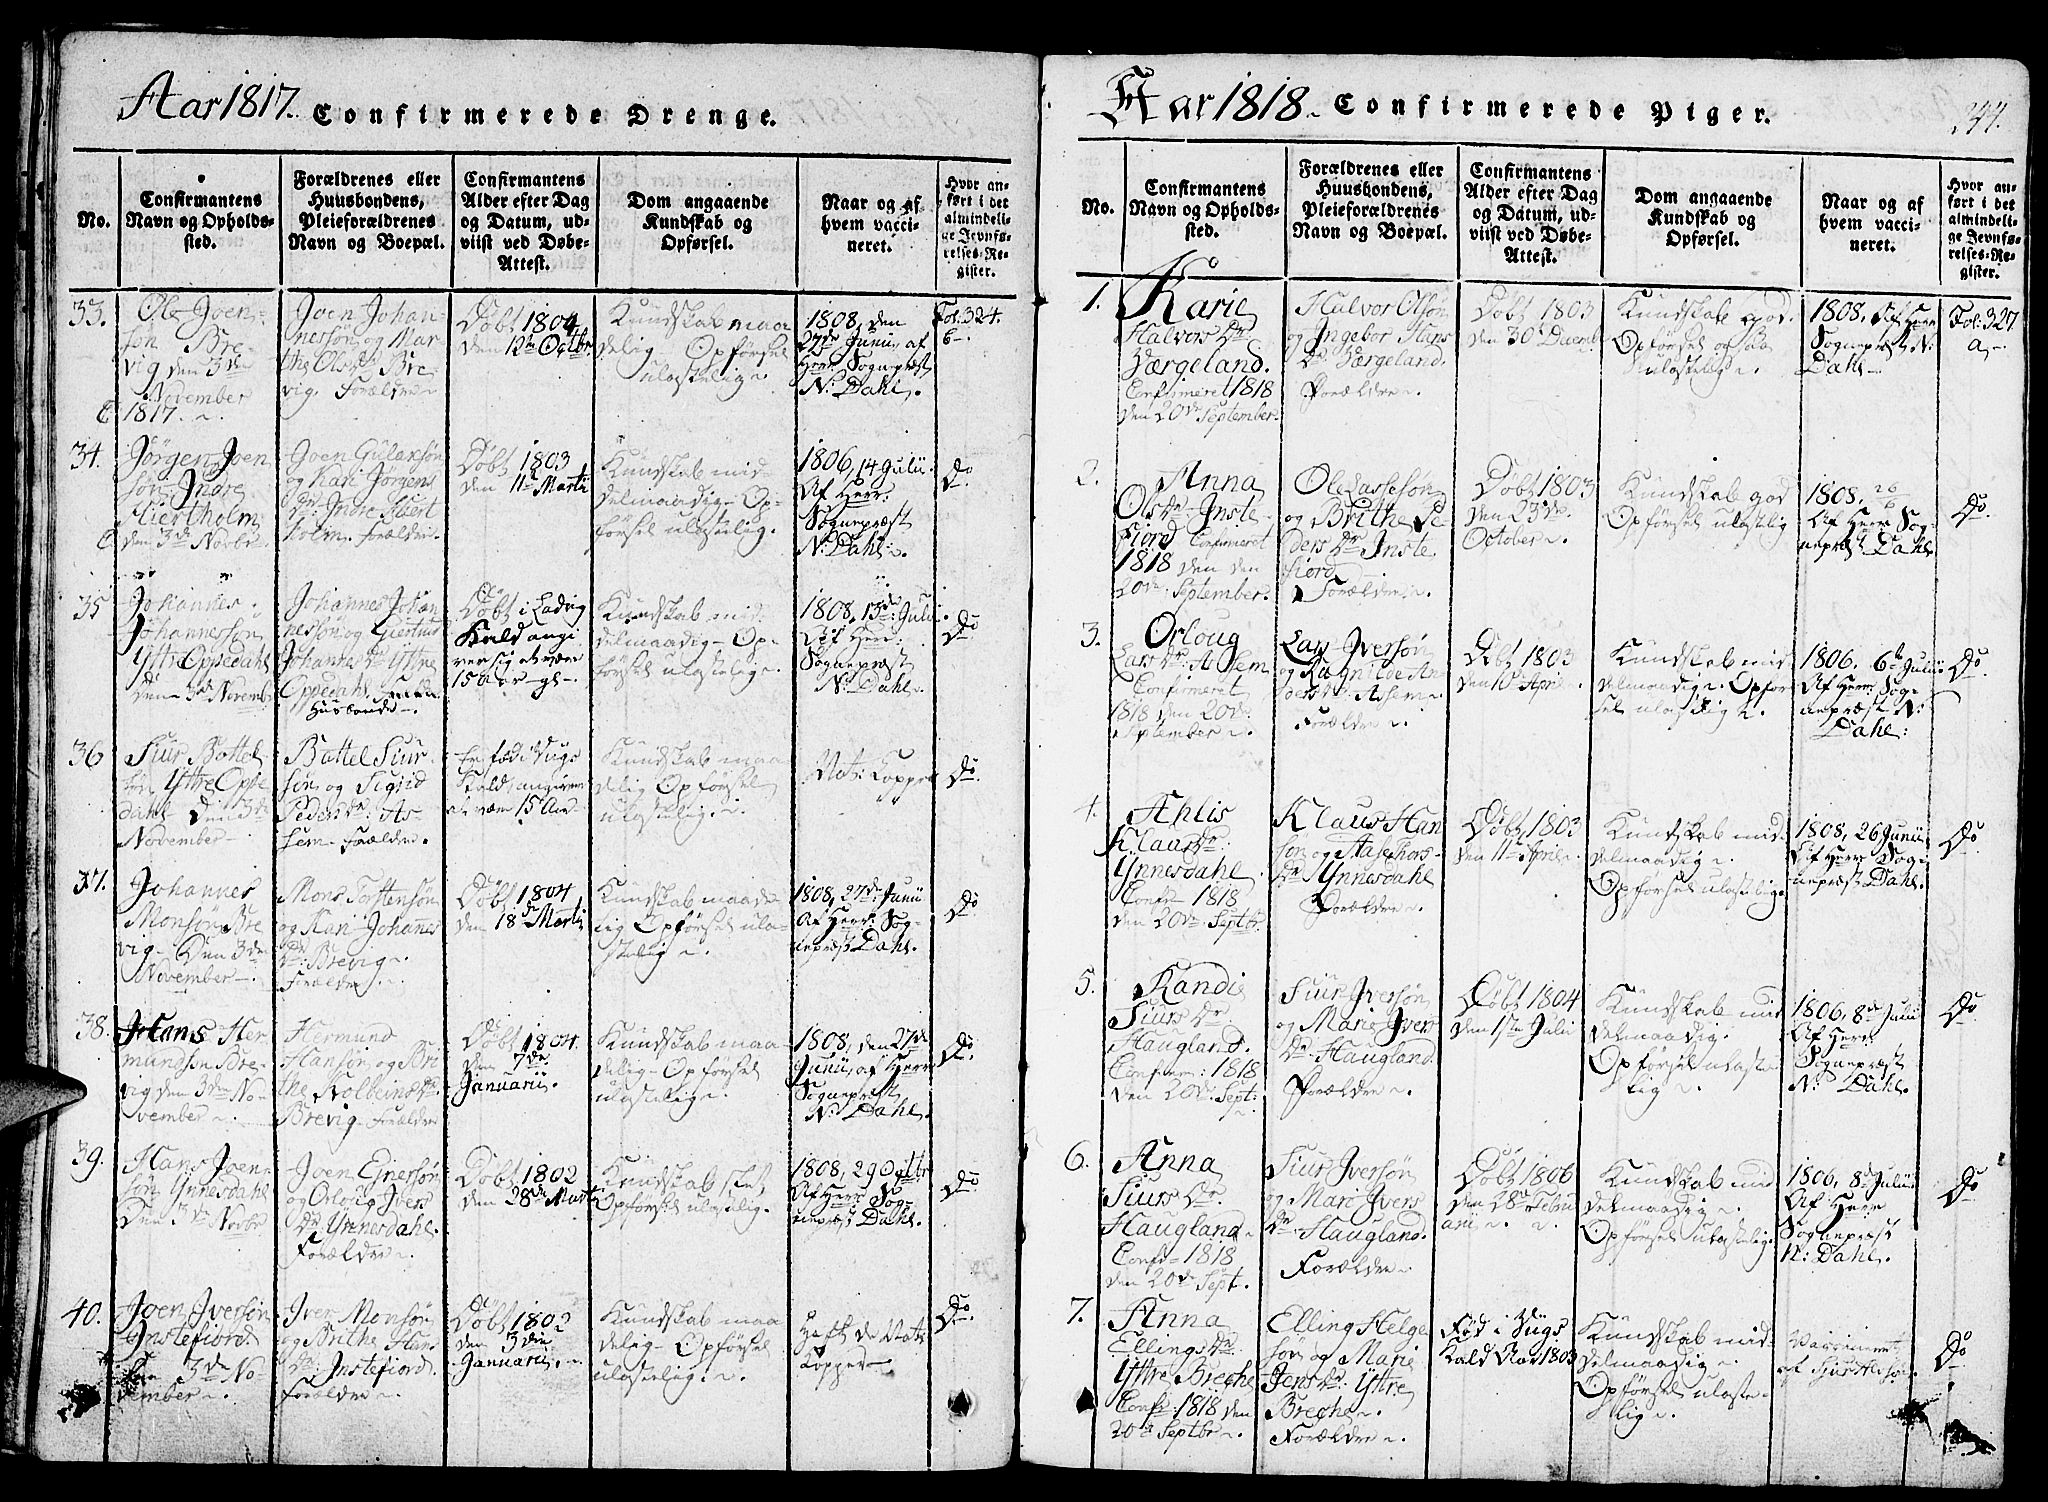 Aar 1817. Confirmerede Drenge.
No.
Confirmantens
Navn og Opholds-
sted.
Forældrenes eller
Huusbondens,
Pleieforældrenes
Navn og Boepæl.
Confirmantens
Alder efter Dag
og Datum, ud-
viist ved Døbe-
Attest.
Dom angaaende
Kundskab og
Opførsel.
Naar og af
hvem vacci-
neret.
Hvor an-
ført i det
almindeli-
ge Jevnfø-
relses-Re-
gister.
33.
Ole Joen-
søn Bre-
vig den 3de
November
1817.
Joen Johan-
nesson og Mar-
the Olsdr Bre-
vig. Forældre
Døbt 1804
den 12te Octbr
Kundskab maa
delig Opførsel
ulastelig.
1808, den
27de Junii, af
Herr Sognepræst
N: Dahl.
Fol. 324.
6-
34.
Jørgen Joen
søn Indre
Hiertholm
den 3de Novbr
Joen Gulaksøn
og Kari Jørgens
dr: Indre Hiert
holm. Forældre.
Døbt 1803
den 11te Marti
Kundskab mid-
delmaadig- Op-
førsel ulastelig.
1806, 14 Julii
Af Herr:
Sognepræst
N: Dahl.
Do.
35
Johannes
Johannessøn
Yttre Oppedahl
Den 3de Novemb
Johannes Johan
nessøn og Giertrud
Johannes dr Yttre
Oppedahl
Husbonde
Døbt i Ladvig
Kald angi
ver sig at være
15 Aar gl-
Kundskab mid-
delmaadig- Op-
førsel ulastelig.
1808, 13de Julii
Af Herr
Sognepræst
N: Dahl
Do
36
Siur Bottel
søn Yttre Oppe
dahl Den 3de
November
Battel Siur-
søn og Sigrid
Pedersdr: As-
sem Forældre
Er fød i Vugs
Kald, angiven
at være 15 Aar
Kundskab maa
delig Opførsel
ulastelig.
Nat: Kopper
Do.
37.
Johannes
Monsøn Bre
vig- Den 3de
November
Mons Torstensøn
og Kari Johannes
dr: Brevig
Forældre.
Døbt 1804
den 18de Martii
Kundskab maade
lig Opførsel ula-
stelig.
1808, 27de Junii
Af Herr: Sog-
nepræst Dahl.
Do
38.
Hans Her
mundsen Bre-
vig den 3de No-
vember
Hermund
Hansøn og Bri
the Kolbeinsdr:
Brevig Forældre
Døbt 1804.
den 7de
Januarii
Kundskab maa-
delig- Opførsel
ulastelig.
1808, den 27de
Junii, af Herr
Sognepræst
N: Dahl.
Do.
39.
Hans Joen-
søn Ynnesdahl
Den 3de Novbr
Joen Ejnersøn
og Orloug Ivers
Dr Ynnesdahl.
Forældre.
Døbt 1802
den 28de Marti
Kundskab slet,
Opførsel ulastelig.
1808, 29 Octbr
Af Herr Sog-
nepræst Dahl.
Do
40.
Joen Iversøn
Instefiord.
3de No-
vember
Iver Monsøn
og Brithe Hans
Dr: Instefiord.
Forældre
Døbt 1802
den 3die
Januarii.
Kundskab maa
delig- Opførsel
ulastelig.
Haft de Nat:
Kopper
Do.
Aar 1818. Confirmerede Piger.
244.
No.
Confirmantens
Navn og Opholds-
sted.
Forældrenes eller
Huusbondens,
Pleieforældrenes
Navn og Boepæl.
Confirmantens
Alder efter Dag
og Datum, ud-
viist ved Døbe-
Attest.
Dom angaaende
Kundskab og
Opførsel.
Naar og af
hvem vacci-
neret.
Hvor an-
ført i det
almindeli-
ge Jevnfø-
relses-Re-
gister.
1.
Karie
Halvors Dr
Værgeland.
Confirmeret 1818
den 20de September.
Halvor Olsøn
og Ingebor Hans
Dr Værgeland.
Forældre.
Døbt 1803
den 30 Decemb
Kundskab god.
Opførsel og saa
ulastelig.
1808, Af Herr
Sognepræst N:
Dahl
Fol. 327.
a.
2.
Anna
Olsdr Inste
fiord Confirmeret
1818 den den
20de September.
Ole Lassesøn
og Brithe Pe
ders Dr Inste
fiord
Forældre.
Døbt 1803
den 23de
October.
Kundskab god
Opførsel ulastelig
1808, 26/6
Af Herr Sog-
nepræst Dahl.
Do.
3.
Orloug
Lars Dr: Assem
Confirmeret
1818 den 20de
September.
Lars Iversøn
og Ragnilde An
dersdr: Assem
Forældre.
Døbt 1803
den 10de April
Kundskab mid
delmaadig. Opfør
sel ulastelig.
1806, 6te Julii
Af Herr Sog-
nepræst N:
Dahl:
Do.
4.
Ahlis
Klausdr:
Ynnesdahl
Confr 1818
den 20de Septbr.
Klaus Han
søn og Aase Thors-
Dr Ynnesdahl
Forældre.
Døbt 1803
den 11te April
Kundskab mid-
delmaadig.
Opførsel ulastelig
1808, 26 Junii
Af Herr Sog-
nepræst Dahl.
Do
5.
Randi
Siurs Dr.
Haugland.
Confirm: 1818
den 20de Sept:
Siur Iversøn
og Marie Ivers
Dr. Haugland
Forældre.
Døbt 1804
den 1ste Julii
Kundskab mid
delmaadig.
Opførsel ulaste-
lig.
1806, 8de Julii
Af Herr
Sognepræst
N: Dahl.
Do
6.
Anna
Siurs Dr:
Haugland.
Confr 1818
den 20de Sept.
Siur Iversøn
og Mari Ivers
Dr. Haugland.
Forældre.
Døbt 1806
den 28de Febru
arii.
Kundskab mid
delmaadig.
Opførsel ulastelig.
1806, 8de Julii
Af Herr
Sognepræst
N: Dahl.
Do
7.
Anna
Ellings Dr:
Yttre Breche
Confr: 1818 den
20de Septbr.
Elling Helge
søn og Marie
Jens dr: Yttre
Breche.
Forældre.
Fød i Vugs
Kald Aar 1803
Kundskab mid-
delmaadig.
Opførsel ulaste-
lig.
Vaccineret
af
Do